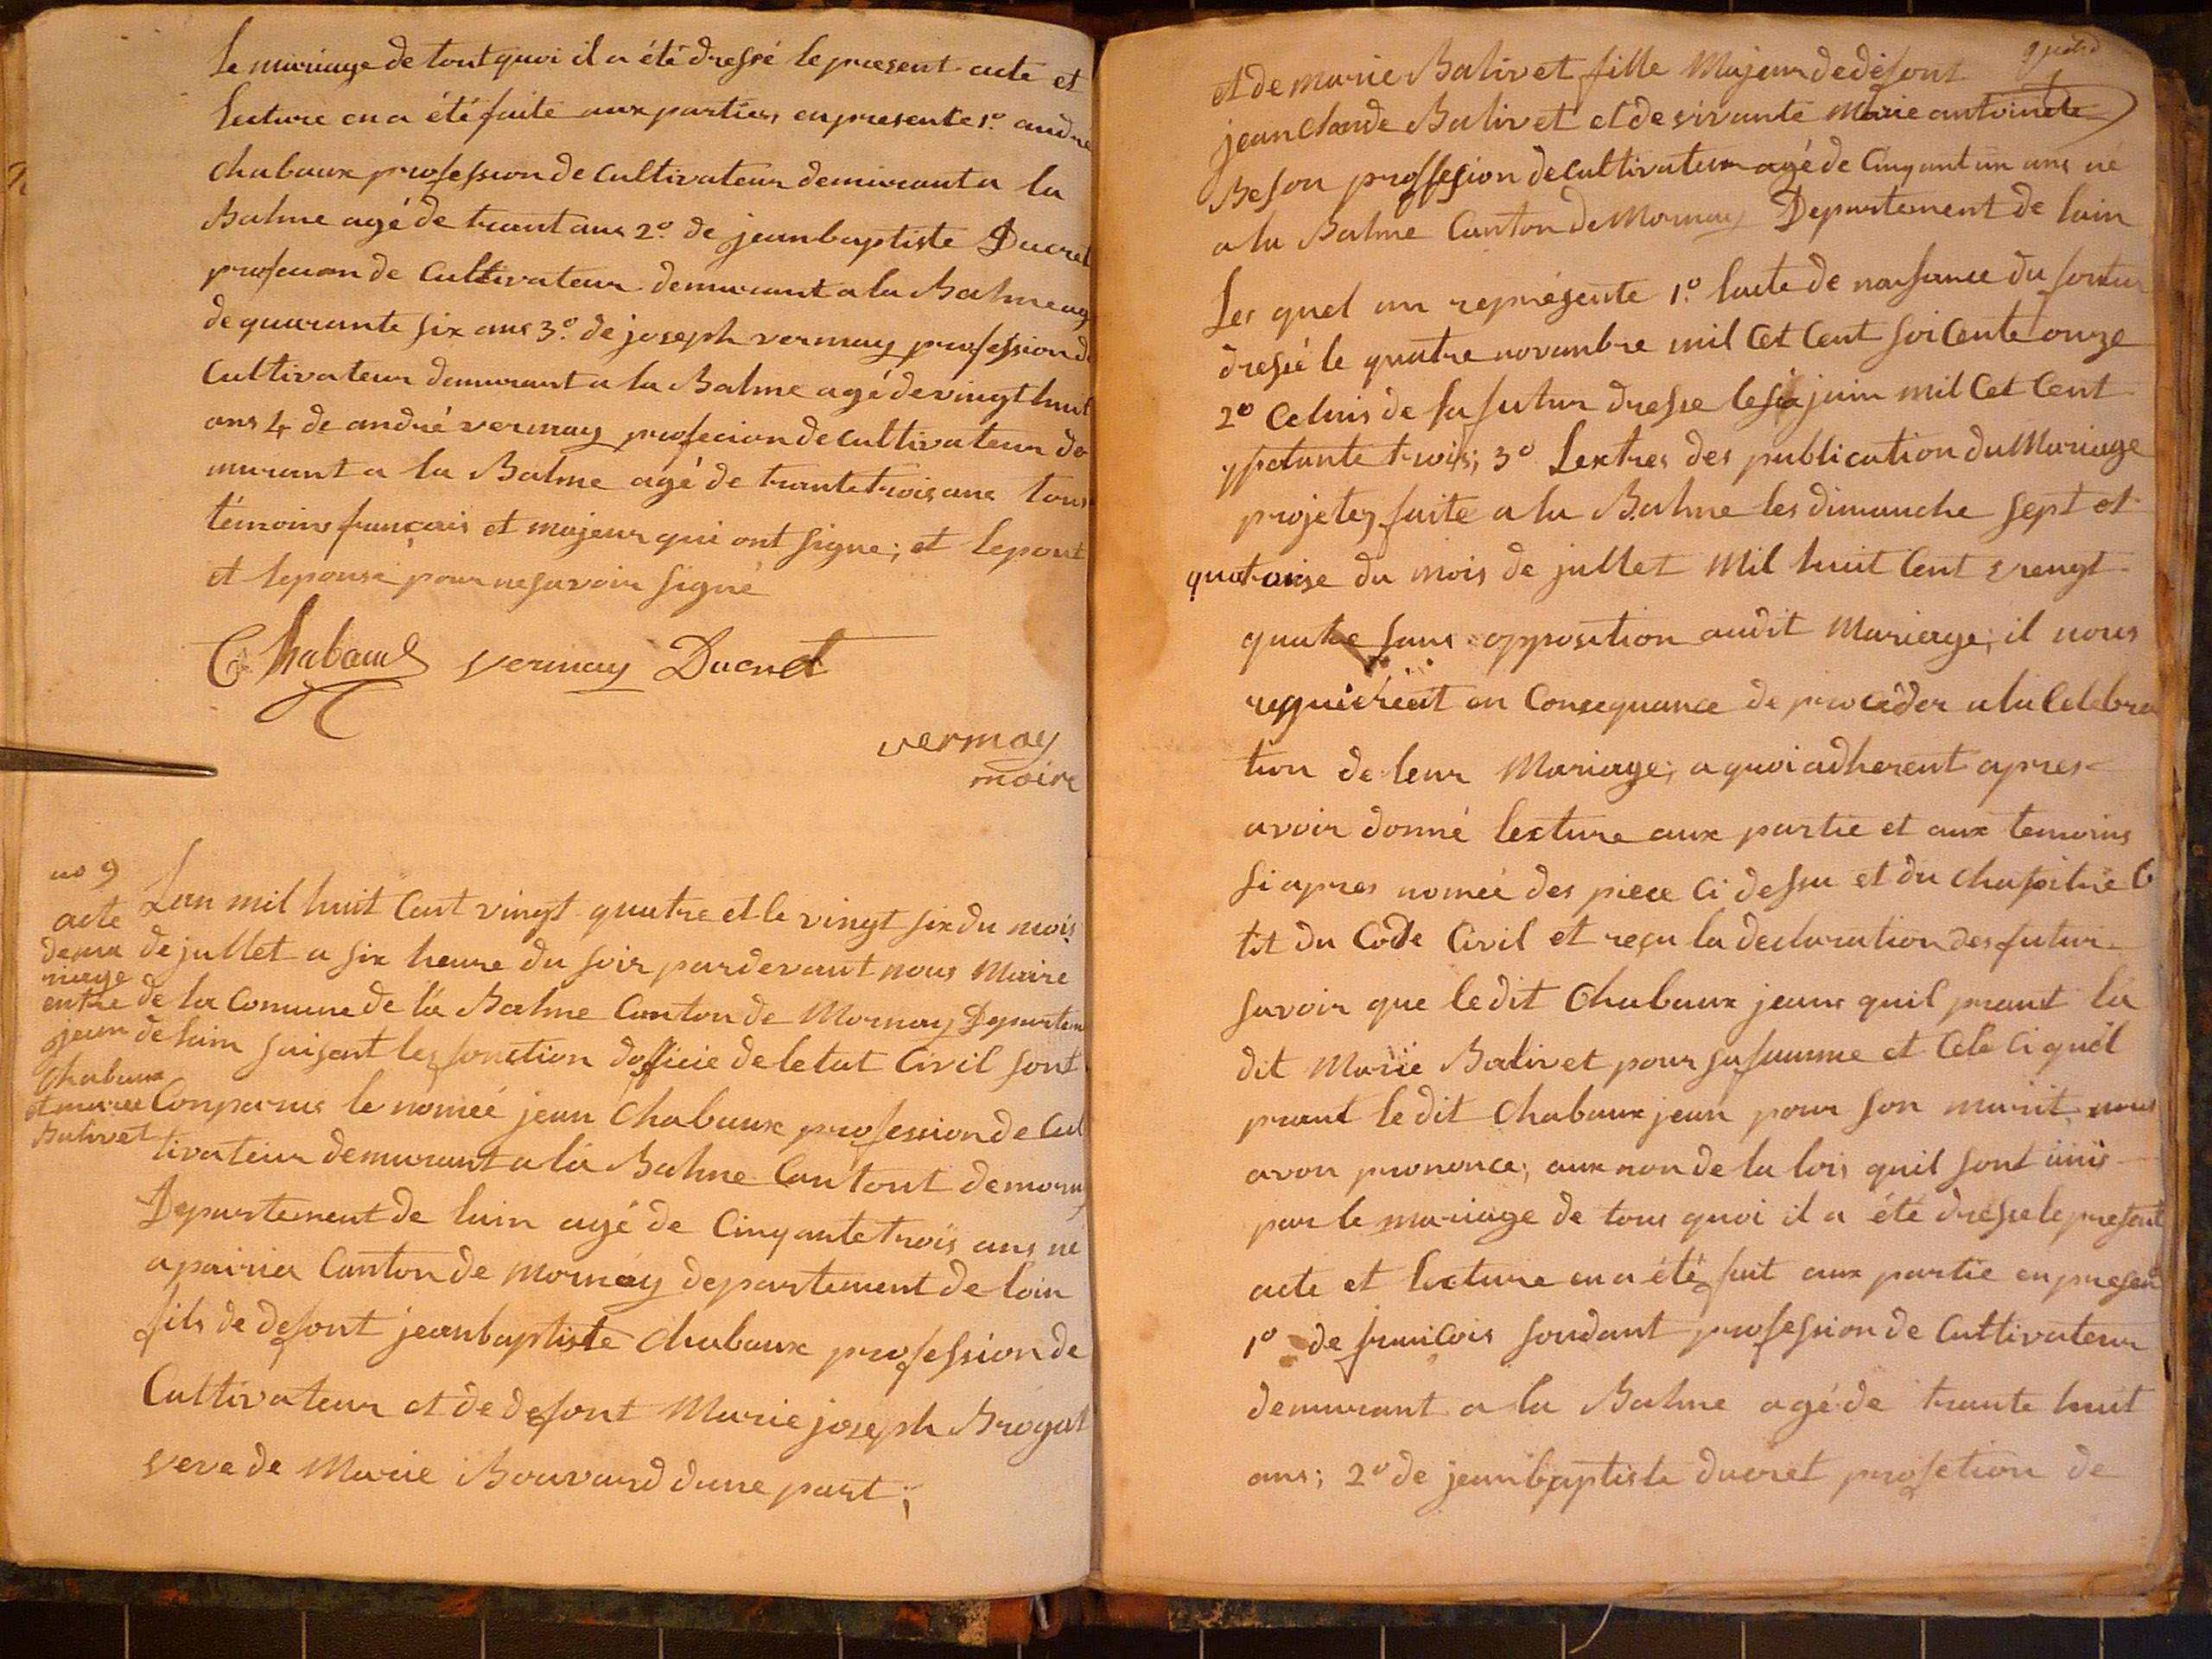 Le mariage de tout quoi il a été dressé le present acte et
Lecture en a été faite aux parties en presente 1.º andre
chabaux profession de Cultivateur demurant a la
Balme agé de trant ans 2.º de jean baptiste Ducret
profecion de Cultivateur demurant a la Balme ag
de quarante six ans 3.º de joseph vermay profession de
Cultivateur demurant a la Balme agé de vingt huit
ans 4 de andré vermay profecion de cultivateur de
murant a la Balme agé de trante trois ans tous
témoins français et majeur qui ont signe; et lepout
et lepouse pour ne savoir signé
Chabaud vermay Ducret
vermay
maire
no 9
acte
de ma
riage
entre
jean
Chabaux
et marie
Balivet
Lan mil huit Cent vingt quatre et le vingt six du mois
de jullet a six heure du soir pardevant nous Maire
de la Comune de la Balme Canton de Mornay Departem
de lain faisant les fonction dofficie de letat Civil sont
Conparus le nomée jean Chabaux profession de Cul
tivateur demurant a la Balme Cantont de morna
Departement de lain agé de Cinqante trois ans né
a pairier Canton de mornay departement de lain
fils de defont jean baptiste Chabaux profession de
Cultivateur et de defont Marie joseph Brogat
veve de Marie Bouvard dune part;
et de marie Balivet fille Majeur de défont
jean claude Balivet et de vivante Marie antoinete
Beson proffesion de cultivateur agé de Cinqant un ans né
a la Balme Canton de Mornay Departement de lain
Les quel on représente 1.º lacte de naisance du foutur
dresié le quatre novanbre mil Cet Cent soiCente onze
2º Celuis de la futur dresse le six juin mil Cet Cent
trois; 3º Lextres des publication du Mariage
projetez faite a la Balme les dimanche sept et
quatorise du mois de jullet Mil huit Cent vrengt
quatre sans opposition audit Mariage, il nous
requiéreat en Consequance de procéder a la Celebra
tion de leur Mariage; a quoi adherent apres
avoir donné lexture aux partie et aux temoins
si apres nomée des piece Ci dessu et du chapitre 6
tit du Code Civil et reçu la declaration des futur
savoir que le dit Chabaux jeane quil prant la
dit Marie Balivet pour sa famme et Cele Ci quel
prant le dit Chabaux jean pour son marit nous
avon prononce; aux non de la lois quil sont unis
par le mariage de tous quoi il a été dresse le presant
acte et lecture en a été fait aux partie en presen
1º de francois soudant profession de Cultivateur
demurant a la Balme agé de trante huit
ans; 2º de jean baptiste ducret profetion de